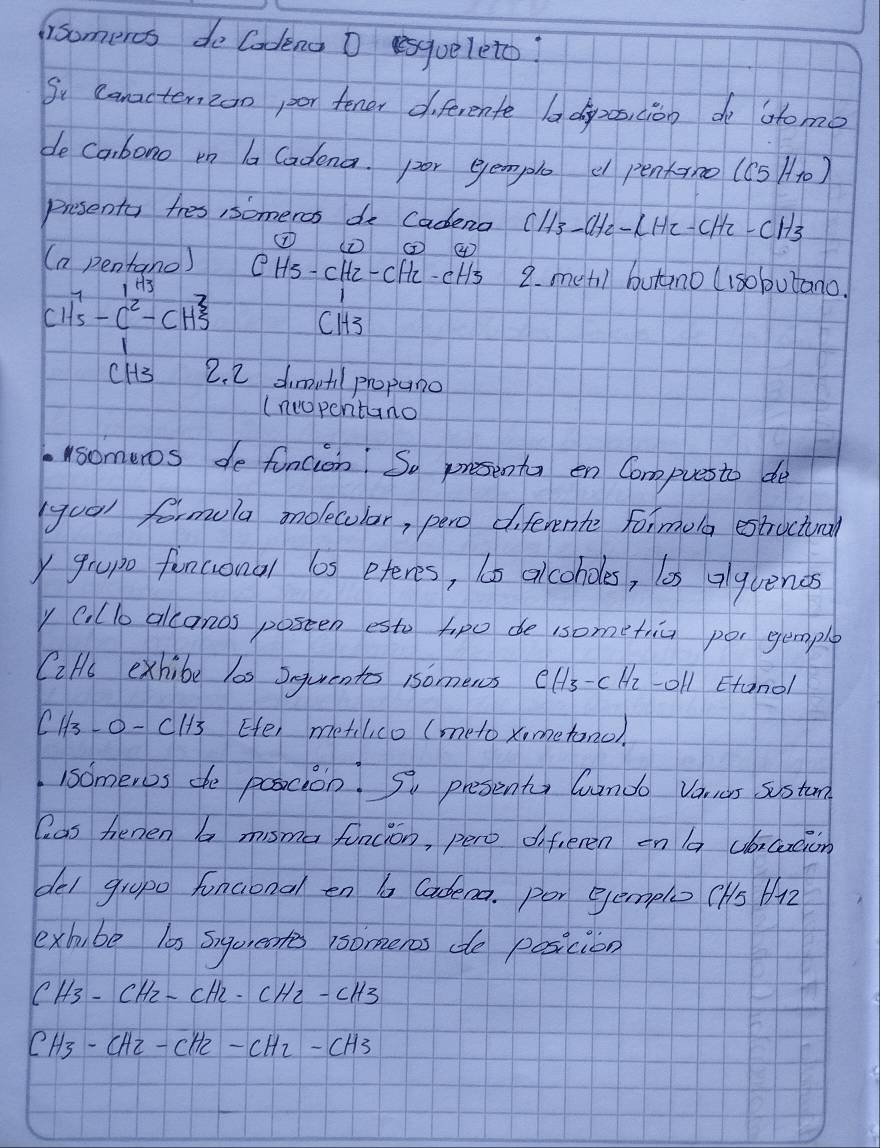 isomeros de Cadena O esqueleto:
Se caracterizan por tener diferente la disposición de átomo
de carbono en la Cadena. por ejemplo el pentano (C5 H10)
presenta tres isómeros de cadena CH3-CH2-CH2-CH2-CH3
① ② ③ ④
(n pentano) CH3-CH2-CH2-CH3 2-metil butano (isobutano.
CH3
CH3 1 - C 2 - CH3 3 CH3
CH3 2.2 dimetil propano
(neopentano
• isomeros de función: Se presenta en Compuesto de
igual formula molecular, pero diferente Formula estructural
y grupo funcional los eteres, los alcoholes, los alquenos
y ciclo alcanos poseen esto tipo de isometria por ejemplo
C2H6 exhibe los siguientes isómeros CH3-CH2-OH Etanol
CH3-O-CH3 Eter metilico (meto ximetano).
. isómeros de posición: Se presenta Cuando Varias Sustan
Cias tienen la misma función, pero difieren en la ubicación
del grupo funcional en la Cadena. por Ejemplo CH5 H12
exhibe los siguientes isómeros de posición
CH3-CH2-CH2-CH2-CH3
CH3-CH2-CH2-CH2-CH3